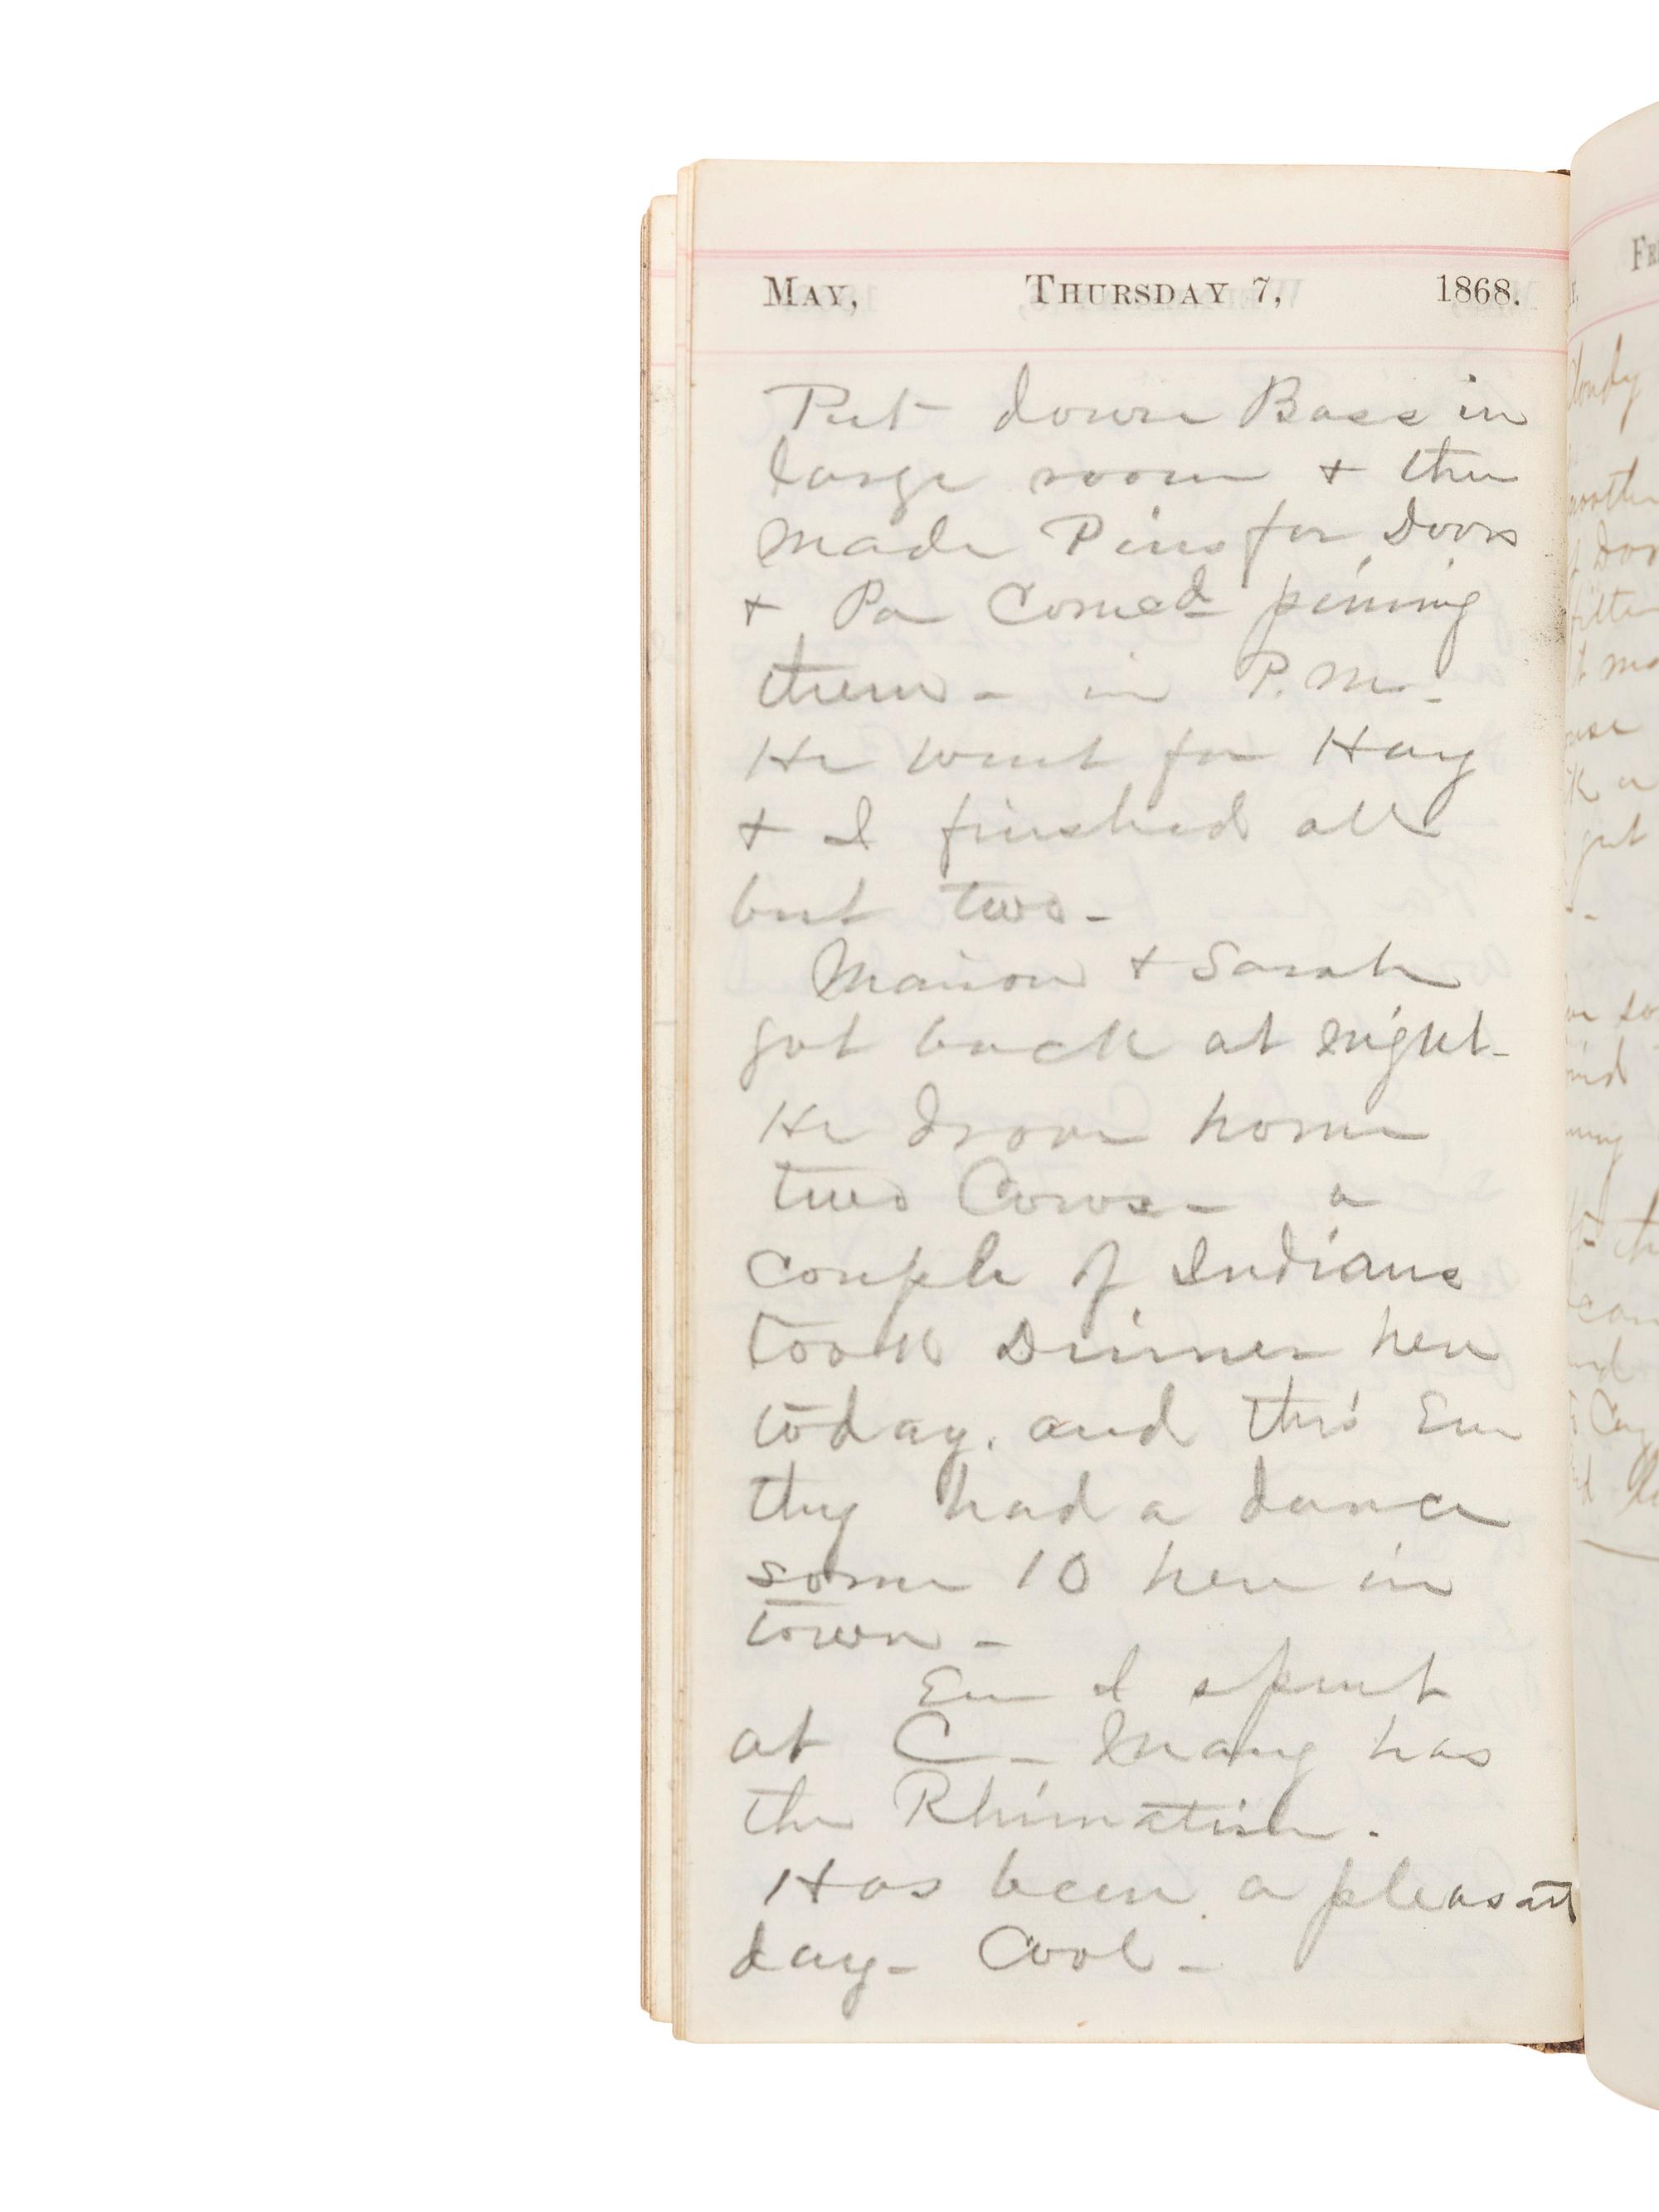 May, Thursday 7, 1868.
Put down Base in
large room + then
made Pins for Doors
+ Pa Comed pining
them - in P.M. -
He went for Hay
+ I finished all
but two -
Marion + Sarah
got back at night -
He drove home
two Cows - a
couple of Indians
took Dinner here
today. and this Eve
they had a dance
some 10 here in
town -
Eve I spent
at C - Mary has
the Rhumatism.
Has been a pleasant
day - Cool -